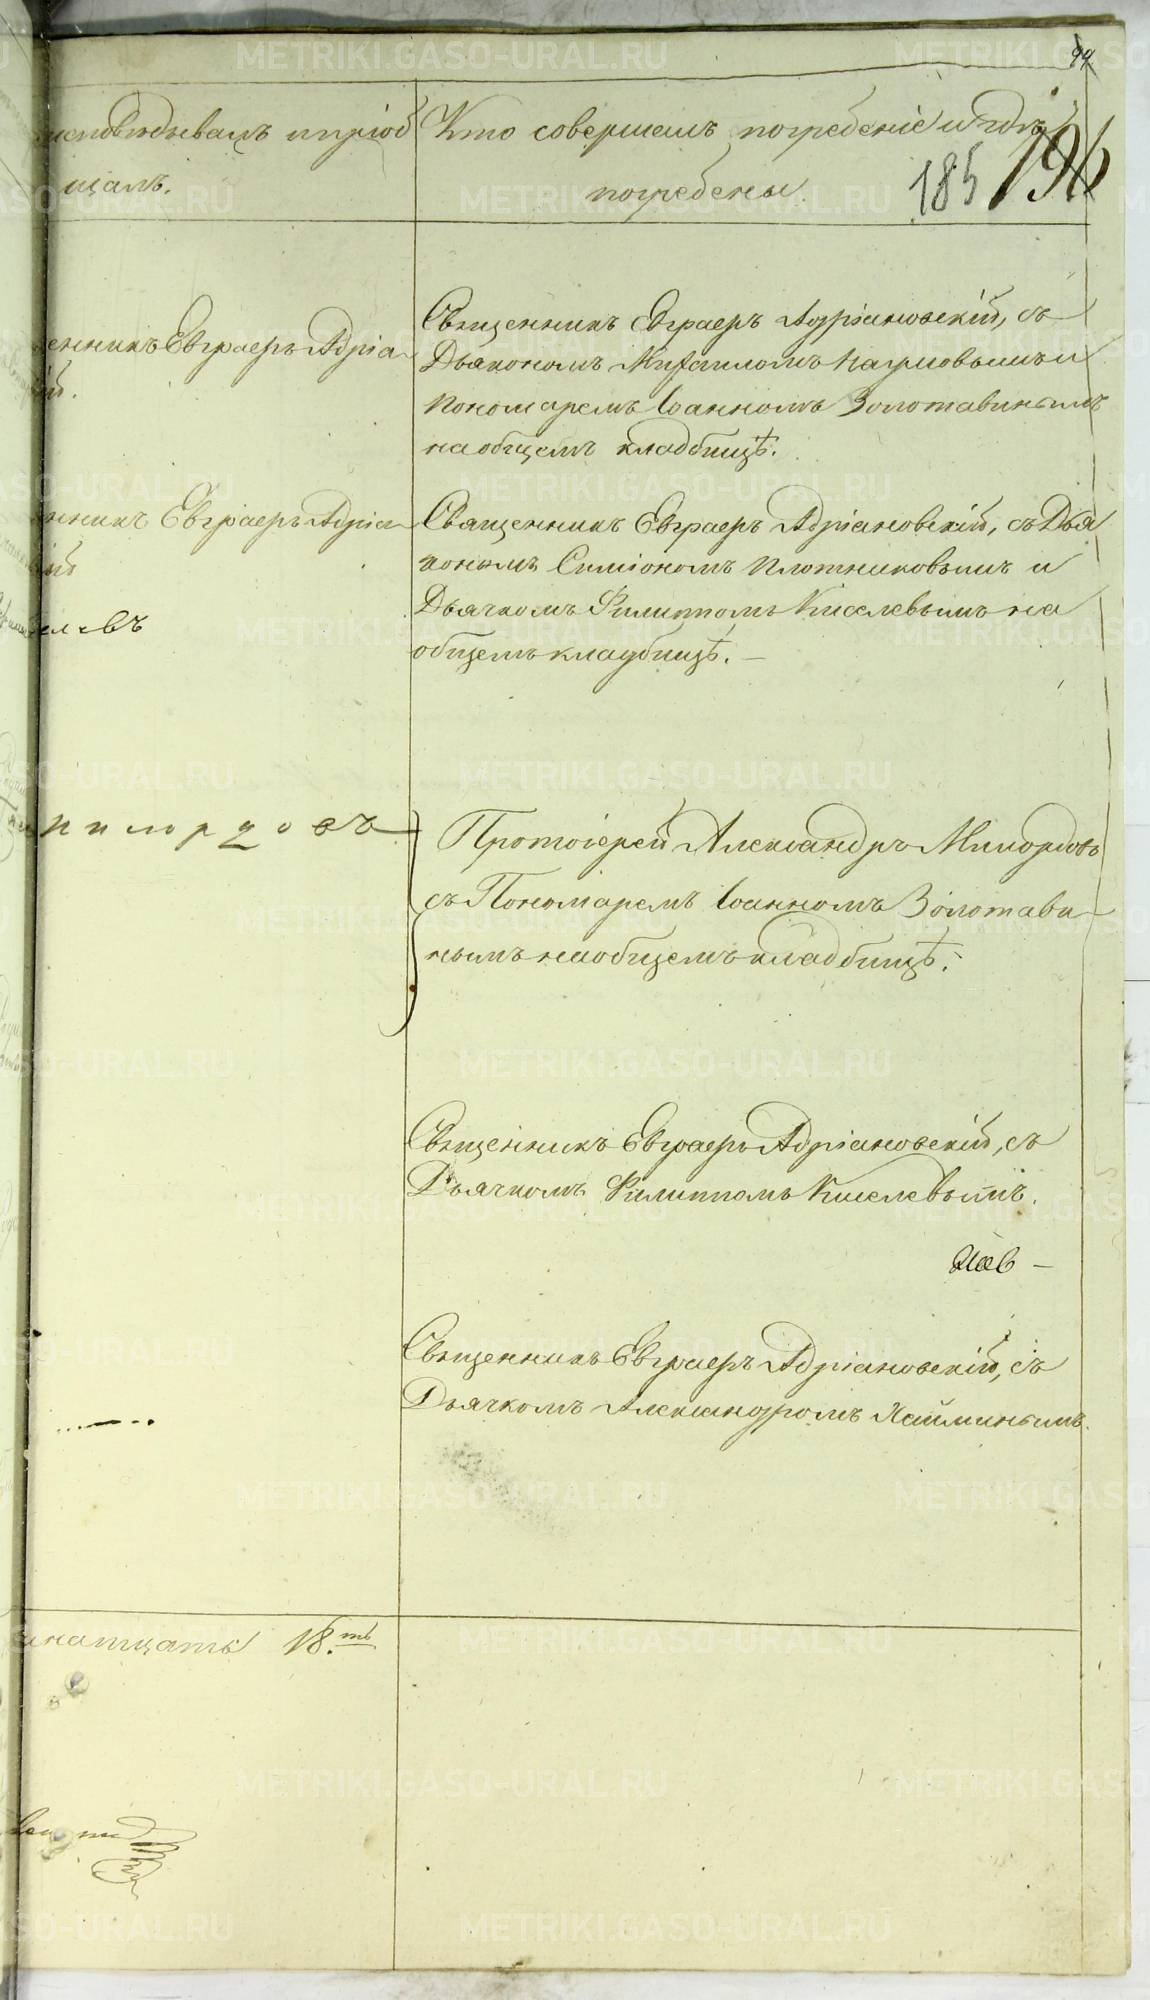 99
исповѣдывалъ и пріоб
щалъ.
Кто совершалъ погребеніе и гдѣ
погребены.
185 196
енникъ Евграфъ Адріа
ій.
Священникъ Евграфъ Адріановскій, съ
Дьякономъ Михаиломъ Наумовымъ и
Пономаремъ Іоанномъ Золотавинымъ
на общемъ кладбищѣ.
нникъ Евграфъ Адріа
ій
Священникъ Евграфъ Адріановскій, съ Дья
кономъ Симіономъ Плотниковымъ и
Дьячкомъ Филиппомъ Киселевымъ на
общемъ кладбищѣ. —
елевъ
Протоіерей Александръ Милордовъ
съ Пономаремъ Іоанномъ Золотави
нымъ на общемъ кладбищѣ.
милордовъ
Священникъ Евграфъ Адріановскій, съ
Дьячкомъ Филиппомъ Киселевымъ.
Священникъ Евграфъ Адріановскій, съ
Дьячкомъ Александромъ Хайминымъ.
натцать 18.ть
METRIKI.GASO-URAL.RU